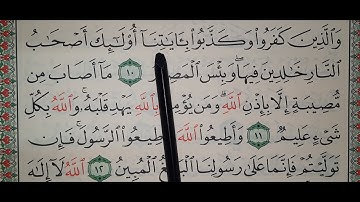 وَٱلَّذِينَ كَفَرُوا۟ وَكَذَّبُوا۟ بِـَٔايَـٰتِنَآ أُو۟لَـٰٓئِكَ أَصْحَـٰبُ
ٱلنَّارِ خَـٰلِدِينَ فِيهَا ۖ وَبِئْسَ ١٠ مَآ أَصَابَ مِن
مُّصِيبَةٍ إِلَّا بِإِذْنِ ٱللَّهِ ۗ وَمَن بِٱللَّهِ يَهْدِ قَلْبَهُۥ ۚ وَٱللَّهُ بِكُلِّ
شَىْءٍ عَلِيمٌ ١١ وَأَطِيعُوا۟ ٱللَّهَ ٱلرَّسُولَ ۚ فَإِن
تَوَلَّيْتُمْ فَإِنَّمَا عَلَىٰ رَسُولِنَا ٱلْمُبِينُ ١٢ ٱللَّهُ لَآ إِلَـٰهَ